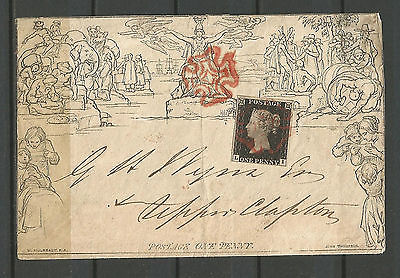 POSTAGE
ONE PENNY
G H Wynn Esq
Upper Clapton
POSTAGE ONE PENNY.
W. MULREADY, R.A.
JOHN THOMPSON